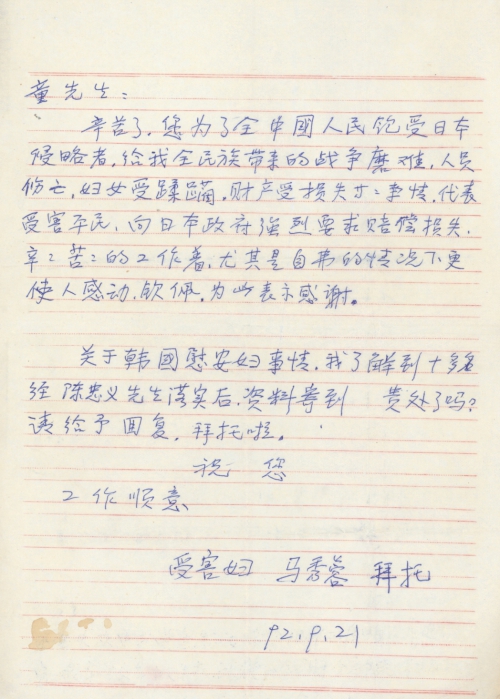 童先生：
辛苦了，您为了全中國人民饱受日本
侵略者，给我全民族带来的战争磨难，人员
伤亡，妇女受蹂躏，财产受损失才：事情，代表
受害平民，向日本政府强烈要求赔偿损失，
辛：苦：的工作着，尤其是自费的情况下更
使人感动，钦佩，为此表示感谢。
关于韩國慰安妇事情，我了解到十多名
经陈忠义先生落实后，资料寄到 贵处了吗？
请给予回复，拜托啦。
祝 您
工作顺意
受害妇 马秀蓉 拜托
92.9.21